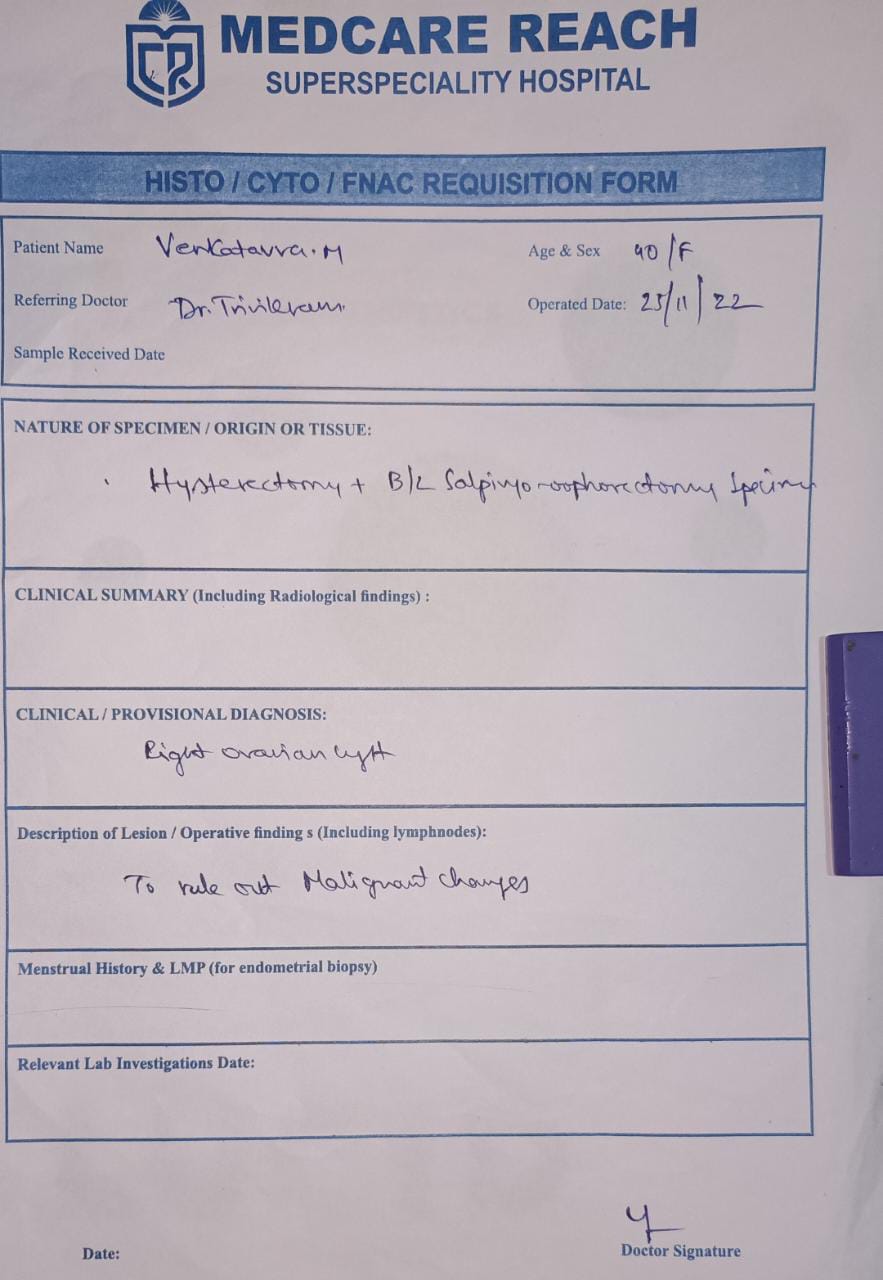 MEDCARE REACH
SUPERSPECIALITY HOSPITAL
HISTO / CYTO / FNAC REQUISITION FORM
Patient Name Venkatavva. M Age & Sex 40/F
Referring Doctor Dr. Trivikram. Operated Date: 25/11/22
Sample Received Date
NATURE OF SPECIMEN / ORIGIN OR TISSUE:
Hysterectomy + B/L Salpingo-oophorectomy
CLINICAL SUMMARY (Including Radiological findings) :
CLINICAL / PROVISIONAL DIAGNOSIS:
Right ovarian cyst
Description of Lesion / Operative finding s (Including lymphnodes):
To rule out Malignant changes
Menstrual History & LMP (for endometrial biopsy)
Relevant Lab Investigations Date:
Date: Doctor Signature